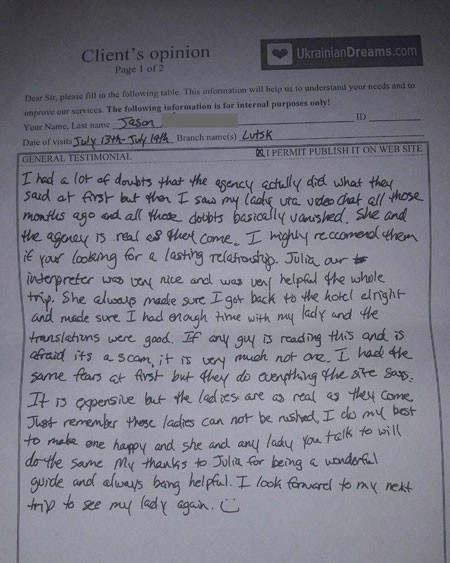 Client's opinion
Page 1 of 2
UkrainianDreams.com
Dear Sir, please fill in the following table. This information will help us to understand your needs and to
improve our services. The following information is for internal purposes only!
Your Name, Last name Jason ID
Date of visits July 13th-July 19th Branch name(s) Lutsk
GENERAL TESTIMONIAL I PERMIT PUBLISH IT ON WEB SITE
I had a lot of doubts that the agency actully did what they
said at first but then I saw my lady via video chat all those
months ago and all those doubts basically vanished. She and
the agency is real as they come. I highly reccomend them
if your looking for a lasting relationship. Julia our
interpreter was very nice and was very helpful the whole
trip. She always made sure I got back to the hotel alright
and made sure I had enough time with my lady and the
translations were good. If any guy is reading this and is
afraid its a scam, it is very much not one. I had the
same fears at first but they do everything the site says.
It is expensive but the ladies are as real as they come
Just remember these ladies can not be rushed, I do my best
to make one happy and she and any lady you talk to will
do the same My thanks to Julia for being a wonderful
guide and always being helpful. I look forward to my next
trip to see my lady again.